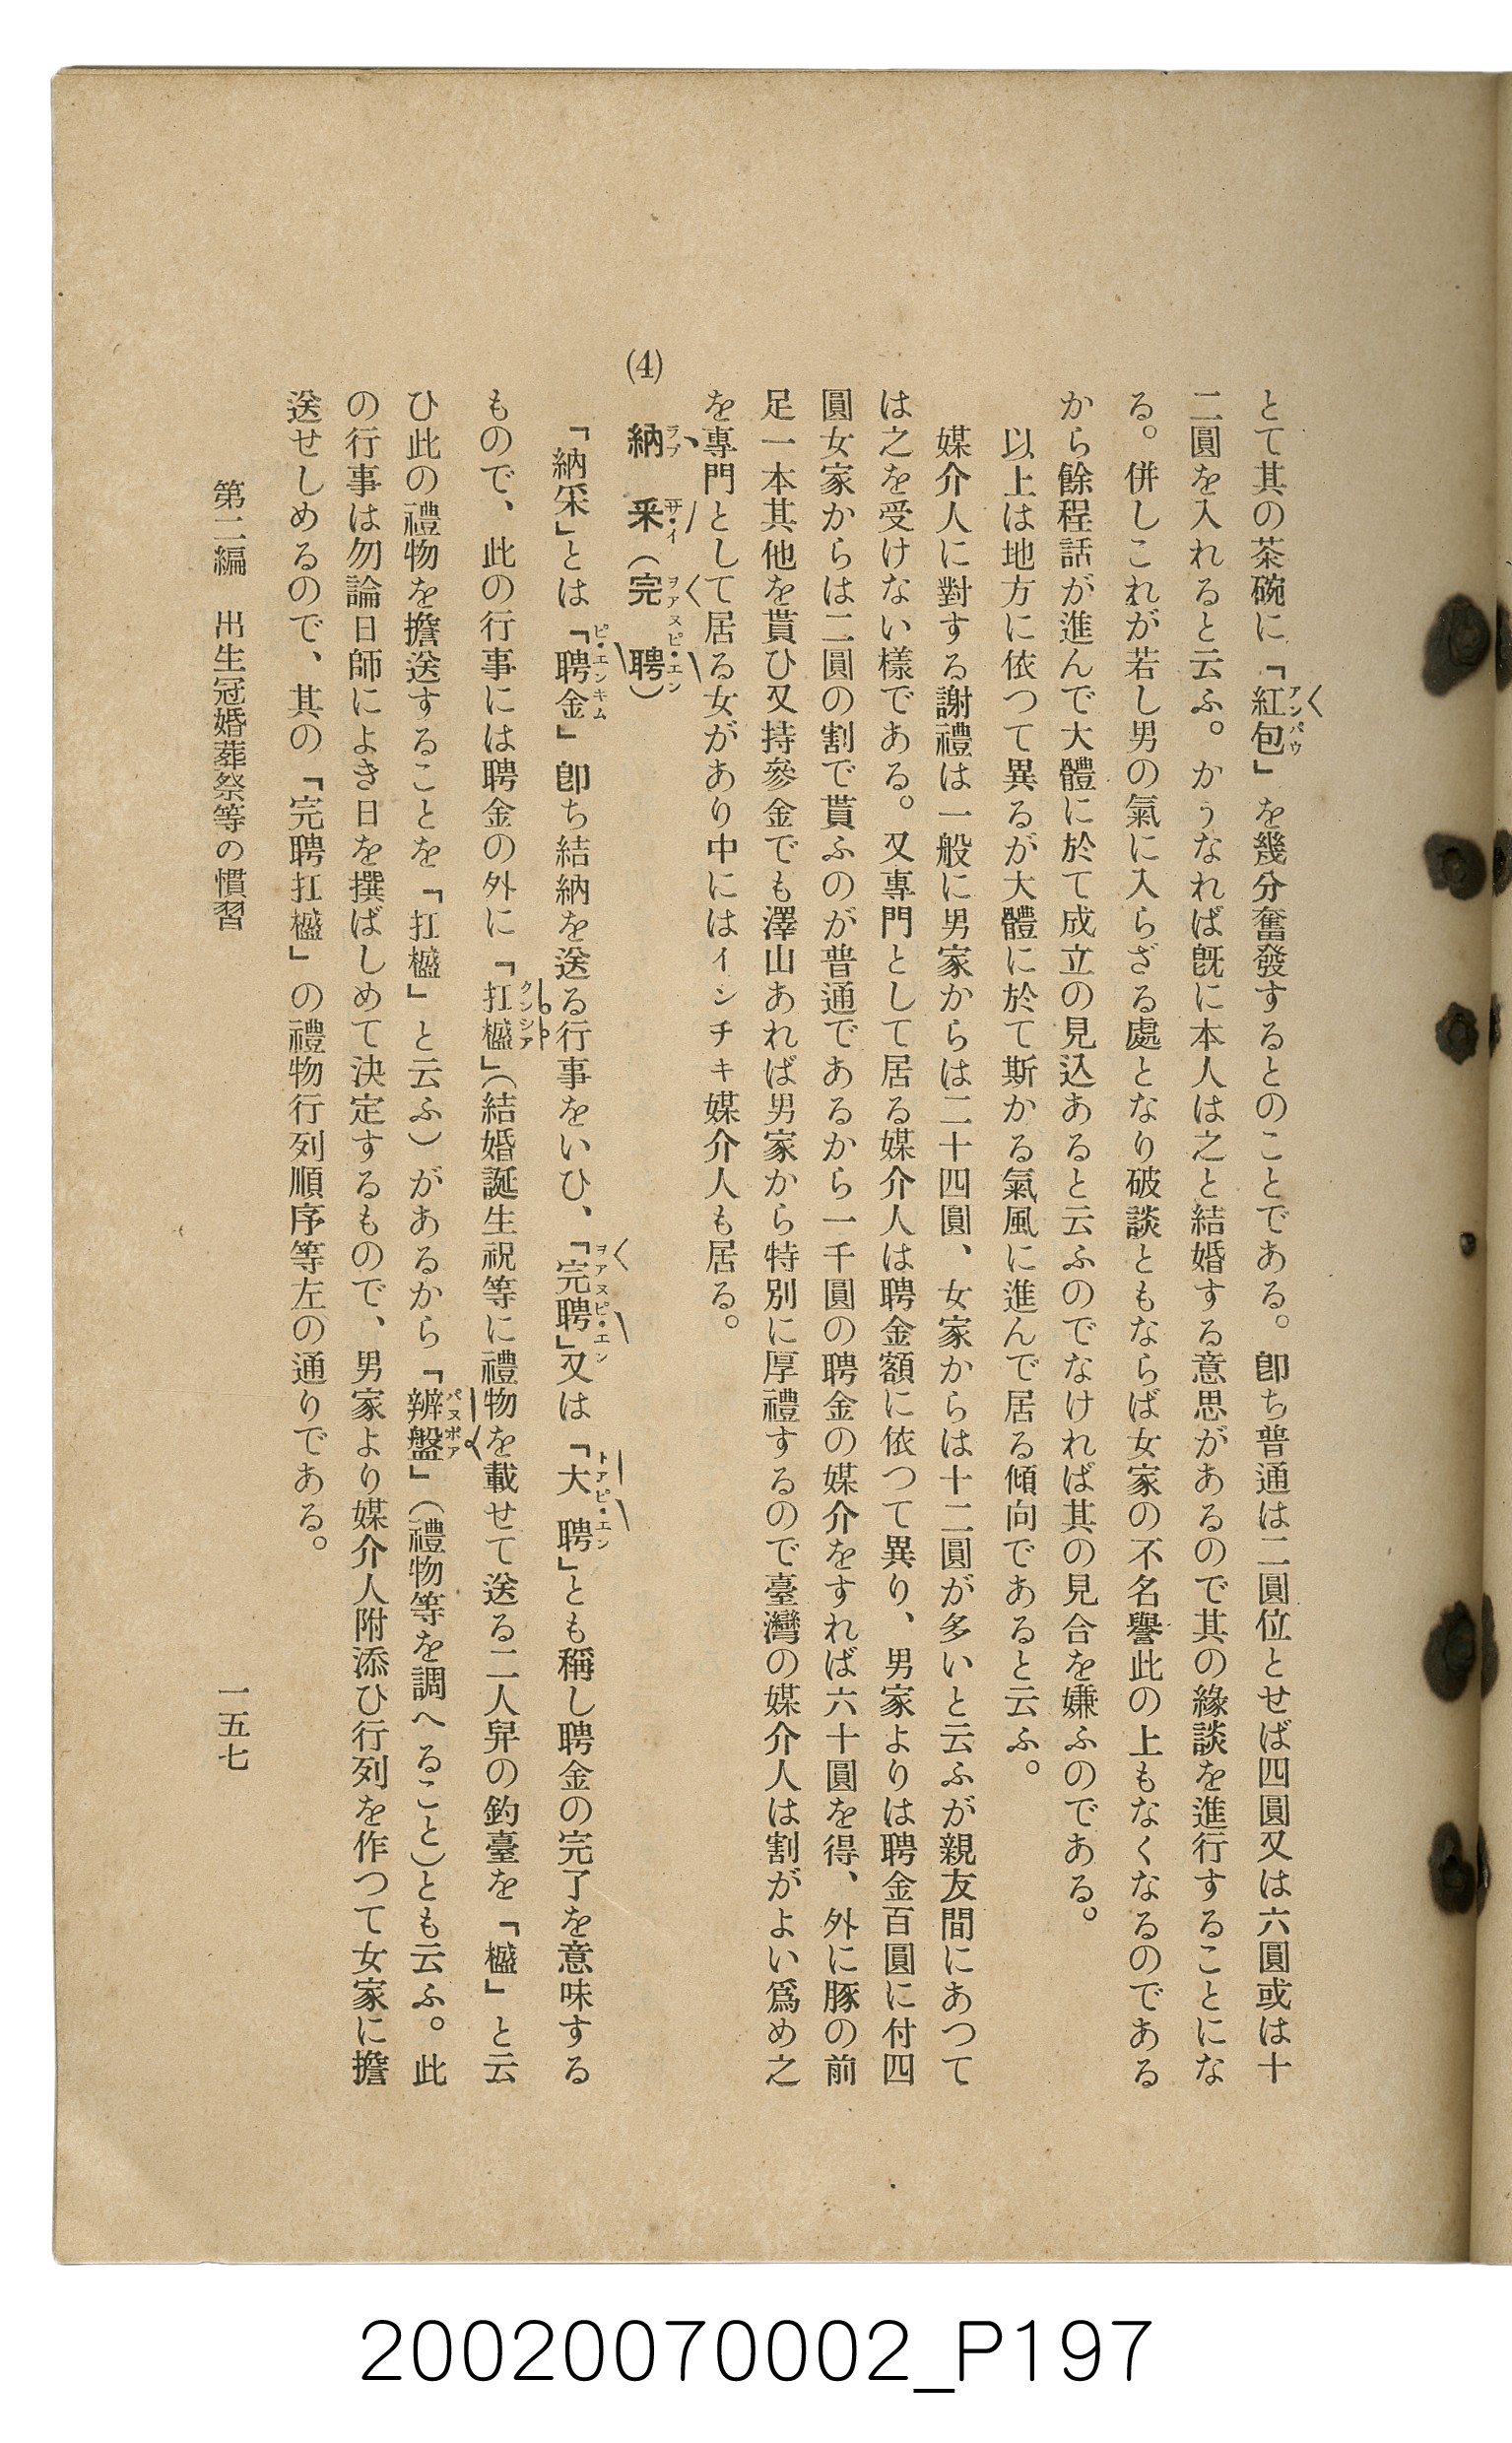 とて其の茶碗に「紅包」を幾分奮發するとのことである。卽ち普通は二圓位とせば四圓又は六圓或は十
二圓を入れると云ふ。かうなれば旣に本人は之と結婚する意思があるので其の緣談を進行することにな
る。併しこれが若し男の氣に入らざる處となり破談ともならば女家の不名譽此の上もなくなるのである
から餘程話が進んで大體に於て成立の見込あると云ふのでなければ其の見合を嫌ふのである。
以上は地方に依つて異るが大體に於て斯かる氣風に進んで居る傾向であると云ふ。
媒介人に對する謝禮は一般に男家からは二十四圓、女家からは十二圓が多いと云ふが親友間にあつて
は之を受けない樣である。又專門として居る媒介人は聘金額に依つて異り、男家よりは聘金百圓に付四
圓女家からは二圓の割で貰ふのが普通であるから一千圓の聘金の媒介をすれば六十圓を得、外に豚の前
足一本其他を貰ひ又持參金でも澤山あれば男家から特別に厚禮するので臺灣の媒介人は割がよい爲め之
を專門として居る女があり中にはインチキ媒介人も居る。
(4) 納采（完聘）
「納采」とは「聘金」卽ち結納を送る行事をいひ、「完聘」又は「大聘」とも稱し聘金の完了を意味する
もので、此の行事には聘金の外に「扛𣛮」（結婚誕生祝等に禮物を載せて送る二人舁の釣臺を「𣛮」と云
ひ此の禮物を擔送することを「扛𣛮」と云ふ）があるから「辨盤」（禮物等を調へること）とも云ふ。此
の行事は勿論日師によき日を撰ばしめて決定するもので、男家より媒介人附添ひ行列を作つて女家に擔
送せしめるので、其の「完聘扛𣛮」の禮物行列順序等左の通りである。
第二編　出生冠婚葬祭等の慣習
一五七
20020070002_P197